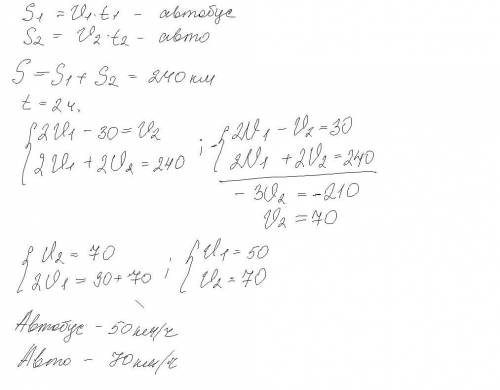 S₁ = V₁·t₁ – автобус
S₂ = V₂·t₂ – авто
S = S₁ + S₂ = 240 км
t = 2 ч.
{2V₁ – 30 = V₂ ; –{2V₁ – V₂ = 30
{2V₁ + 2V₂ = 240 {2V₁ + 2V₂ = 240
– 3V₂ = –210
V₂ = 70
{V₂ = 70 ; {V₁ = 50
{2V₁ = 30 + 70 {V₂ = 70
Автобус – 50 км/ч
Авто – 70 км/ч